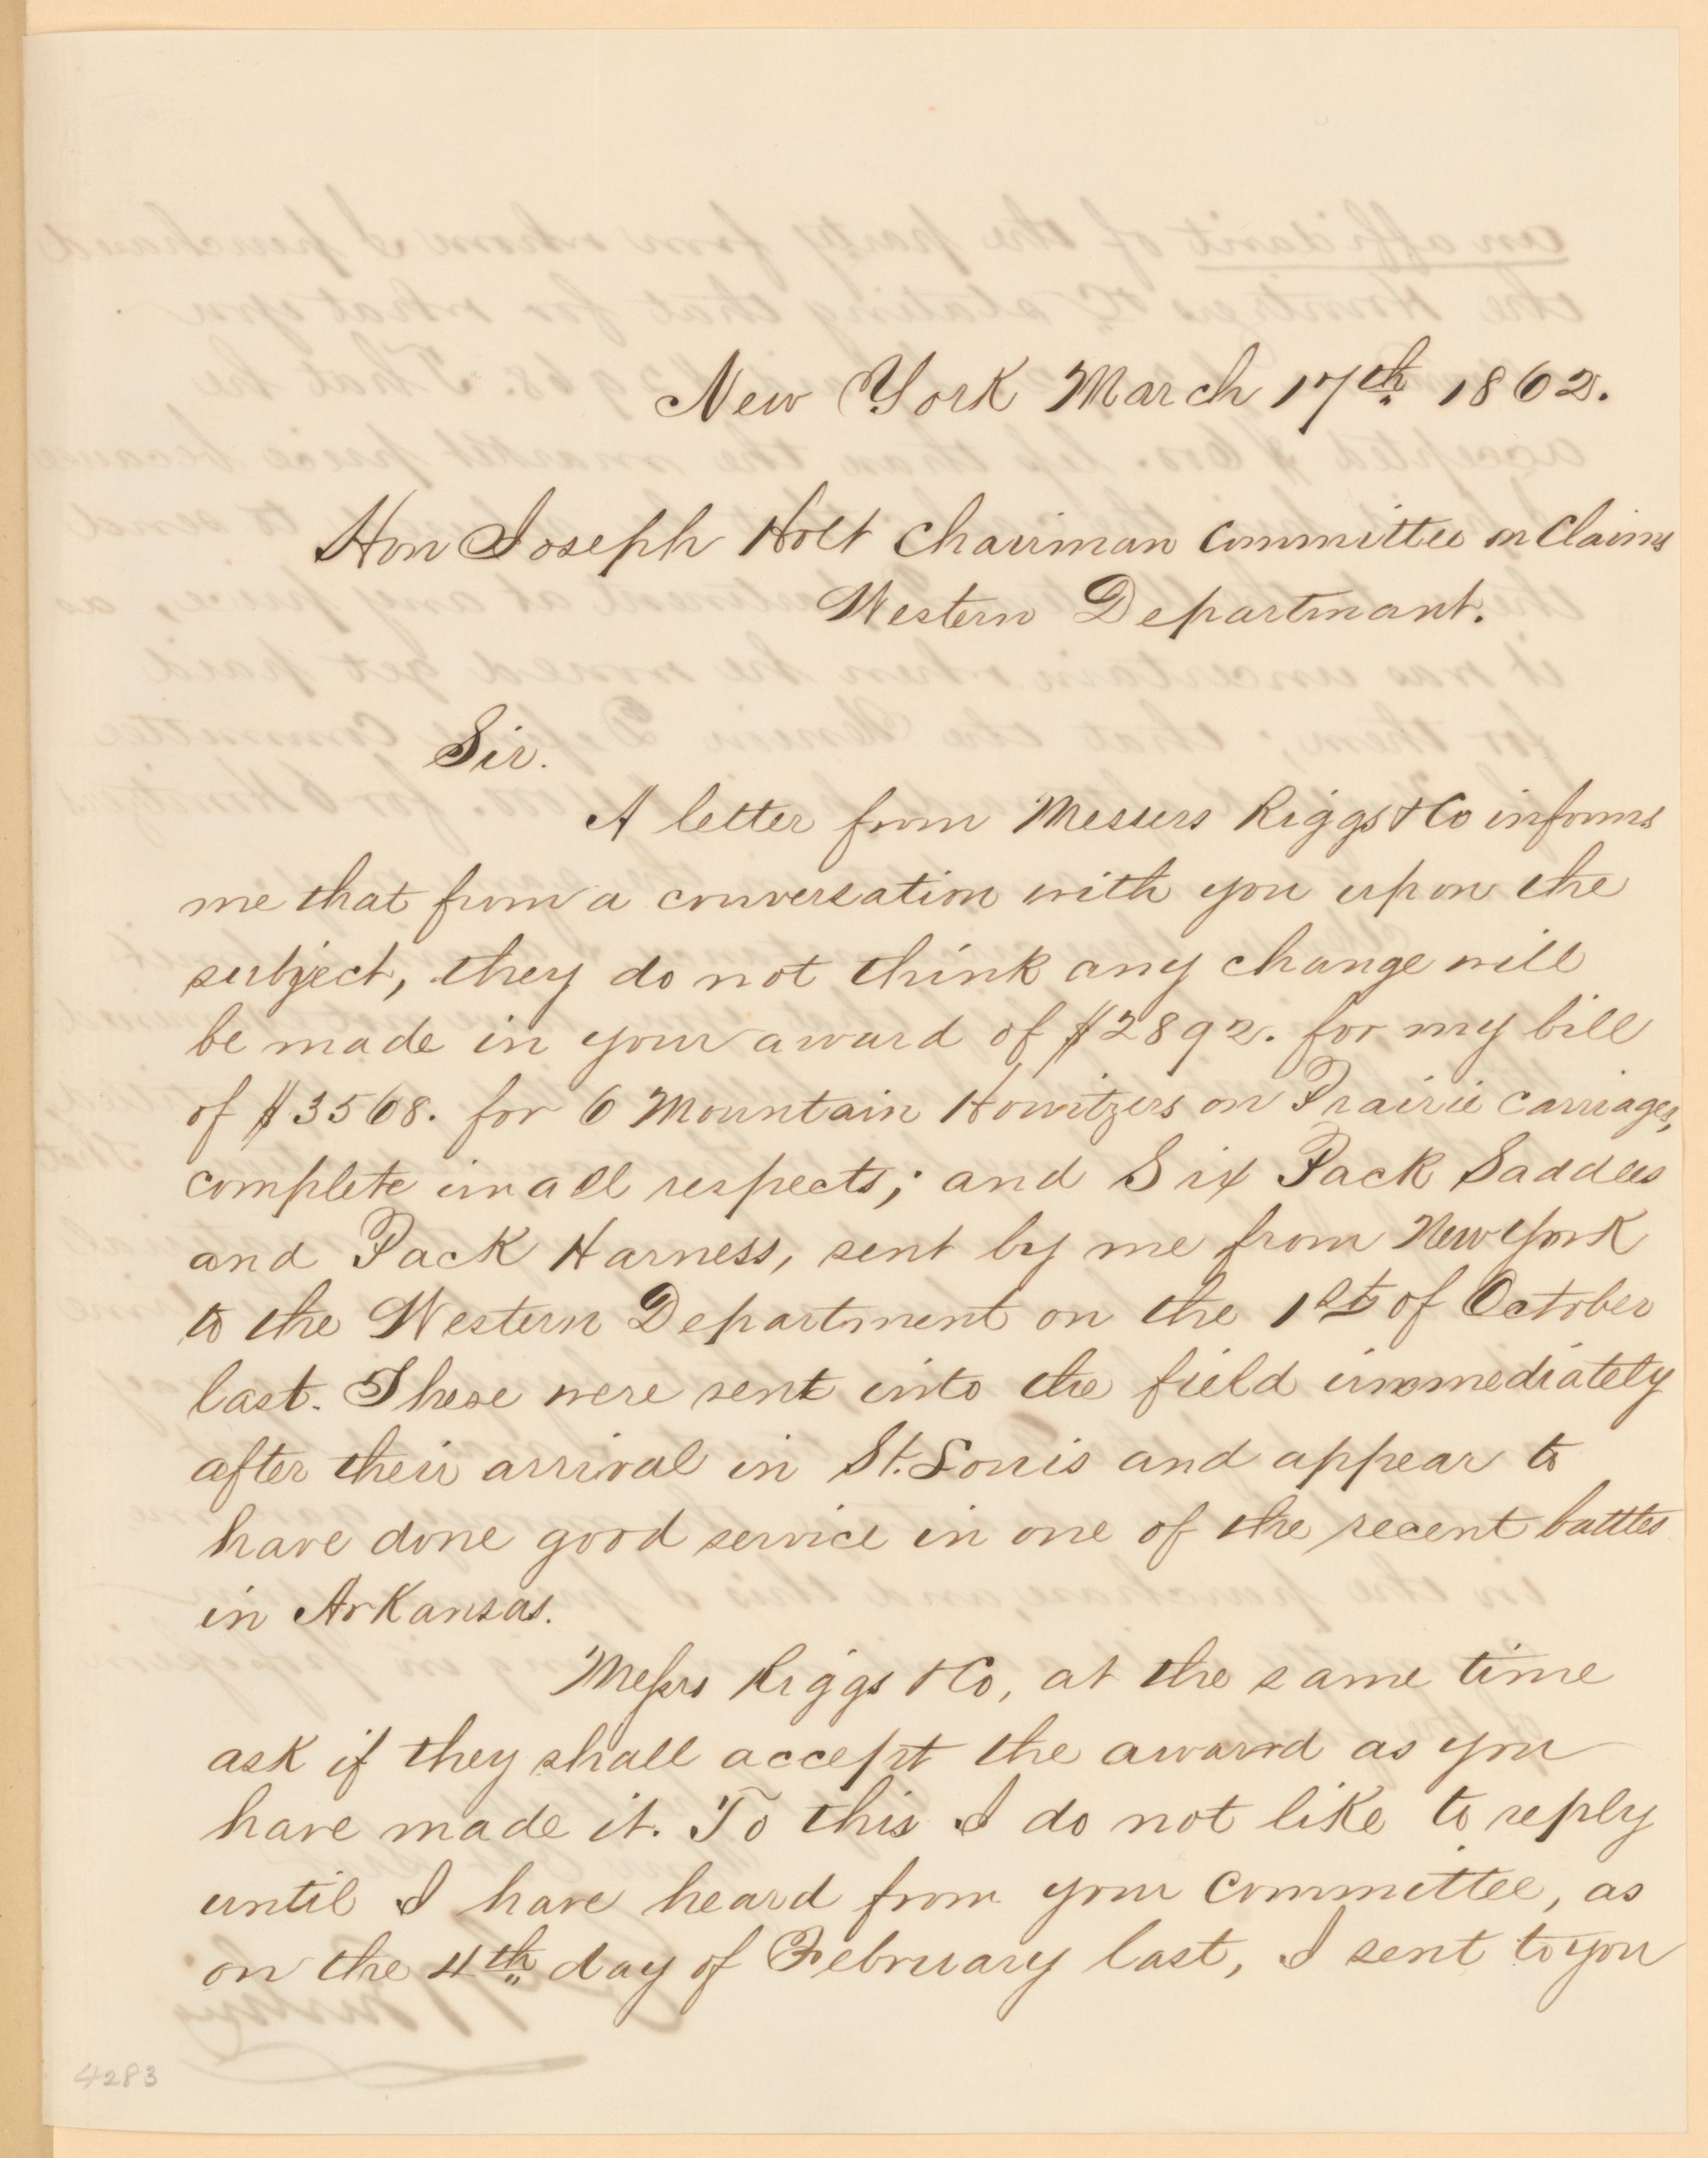 New York March 17th 1862.
Hon Joseph Holt Chairman Committee on Claims
Western Departmant.
Sir.
A letter from Messers Riggs & Co informs
me that from a conversation with you upon the
subject, they do not think any change will
be made in your award of $2892. for my bill
of $3568. for 6 Mountain Howitzers on Prairie carriages,
complete in all respects; and Six Pack Saddles
and Pack Harness, sent by me from New York
to the Western Department on the 1st of October
last. These were sent into the field immediately
after their arrival in St. Louis and appear to
have done good service in one of the recent battles
in Arkansas.
Messrs Riggs & Co, at the same time
ask if they shall accept the award as you
have made it. To this I do not like to reply
until I have heard from your Committee, as
on the 4th day of February last, I sent to you
4283